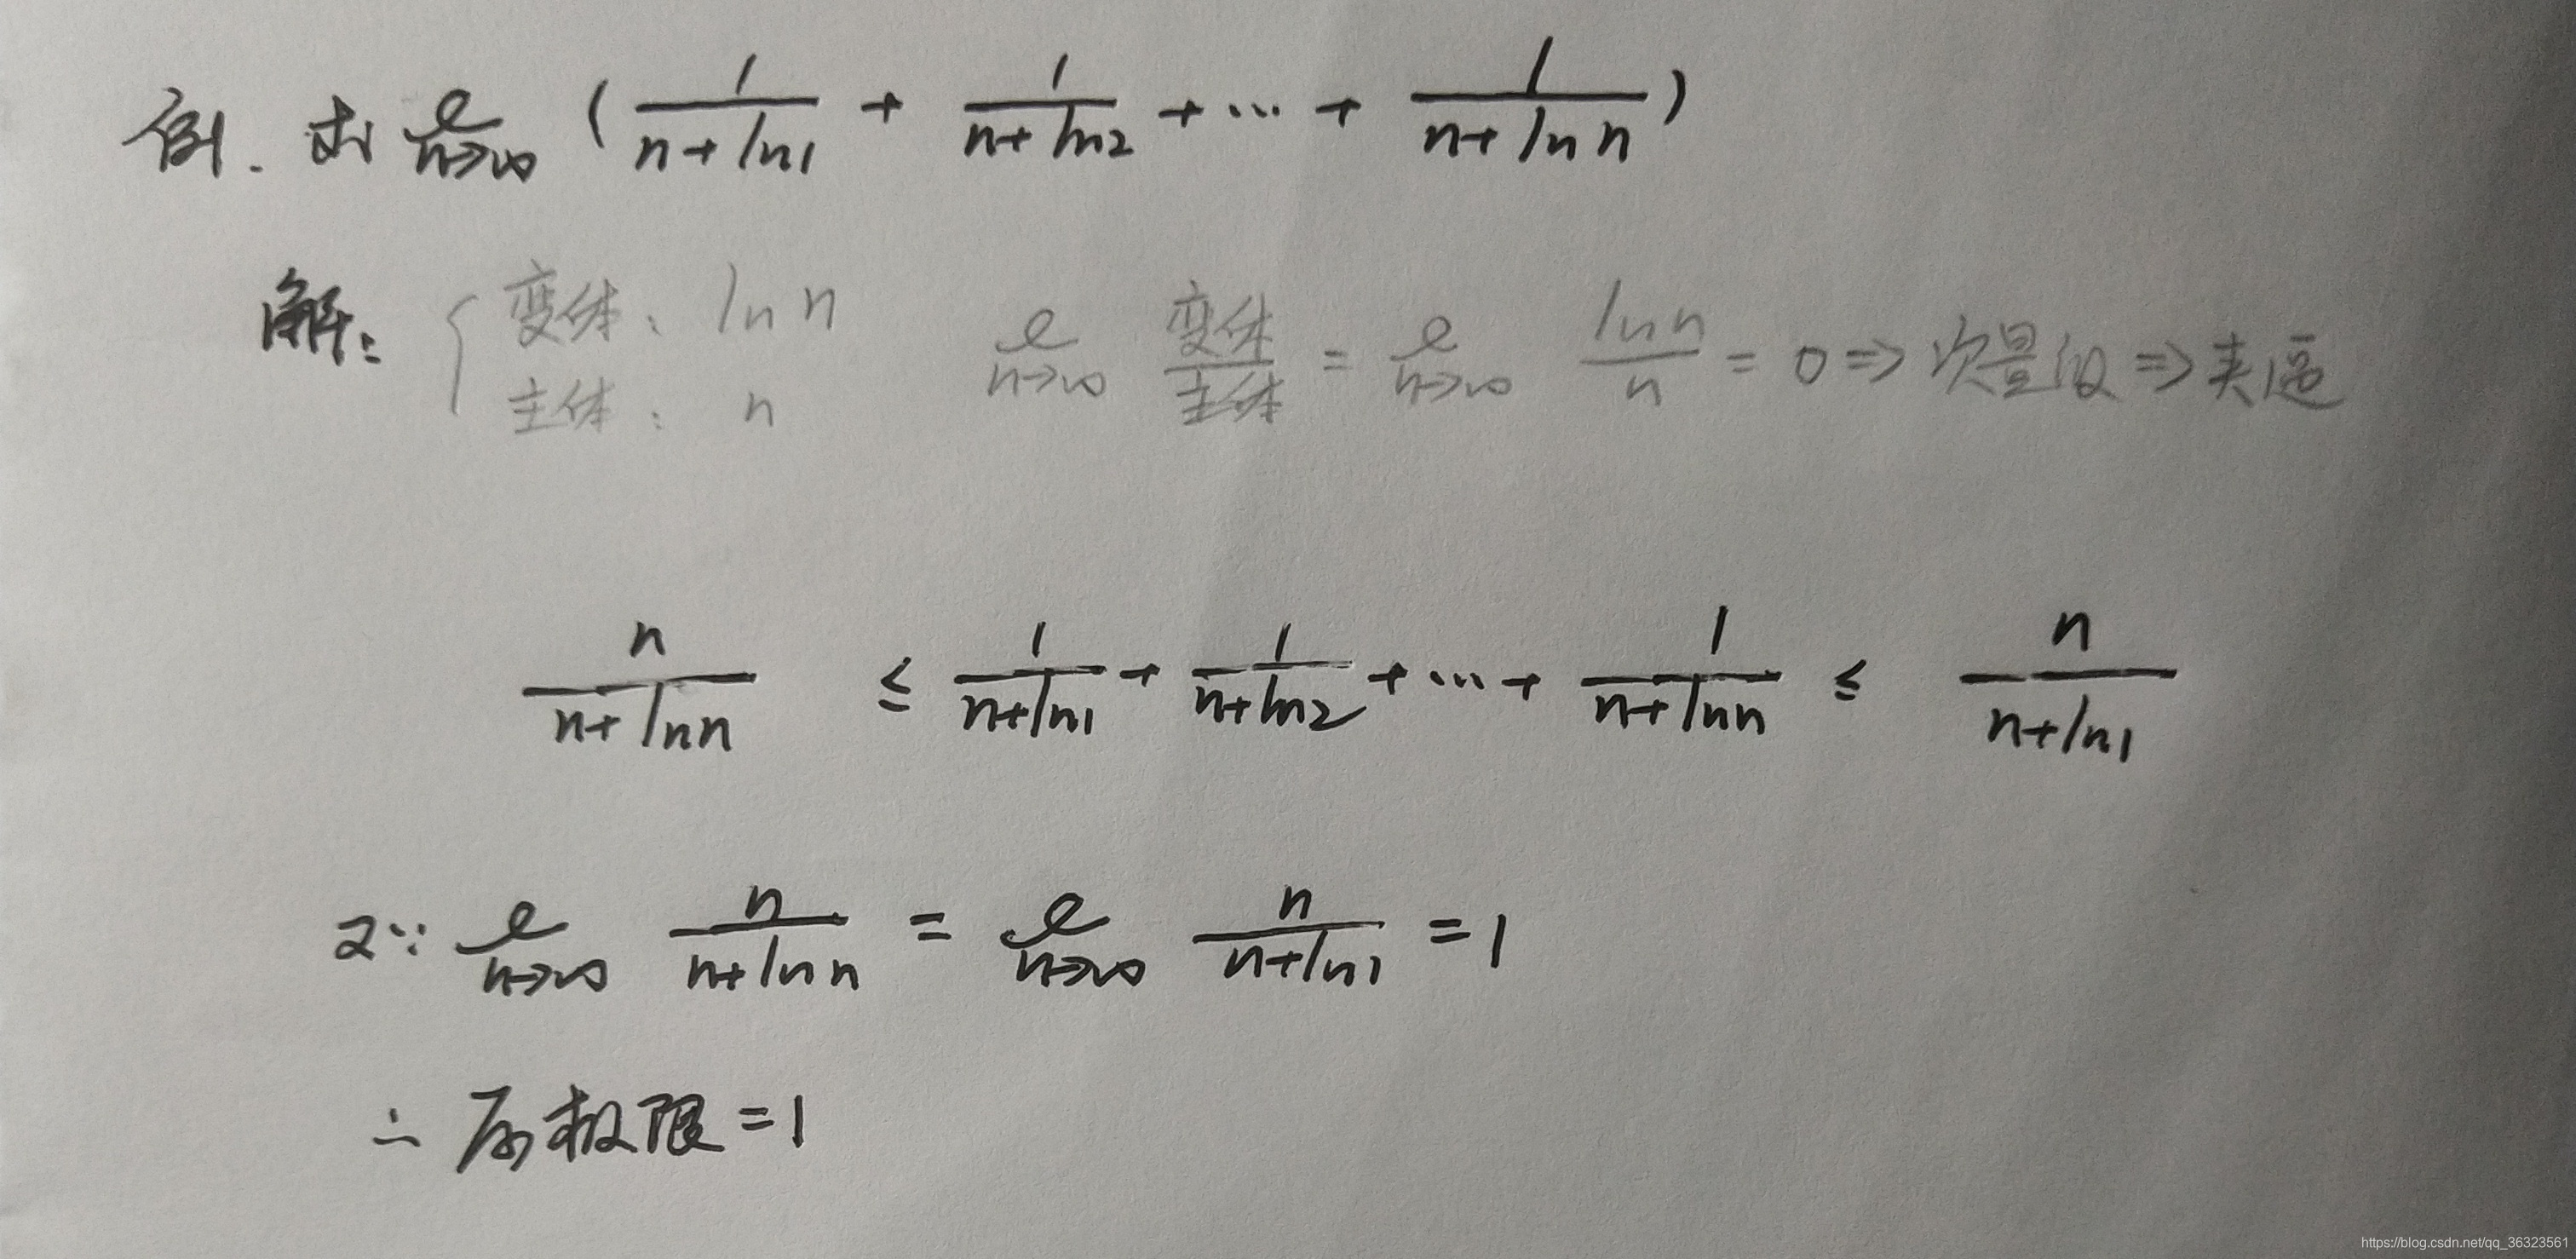 例. 求 lim n→∞ (1/(n+ln1) + 1/(n+ln2) + ··· + 1/(n+ln n))
解: { 变体: ln n 主体: n lim n→∞ 变体/主体 = lim n→∞ ln n/n = 0 ⇒ 次量级 ⇒ 夹逼
n/(n+ln n) ≤ 1/(n+ln1) + 1/(n+ln2) + ··· + 1/(n+ln n) ≤ n/(n+ln1)
又∵ lim n→∞ n/(n+ln n) = lim n→∞ n/(n+ln1) = 1
∴ 原极限 = 1
https://blog.csdn.net/qq_36323561